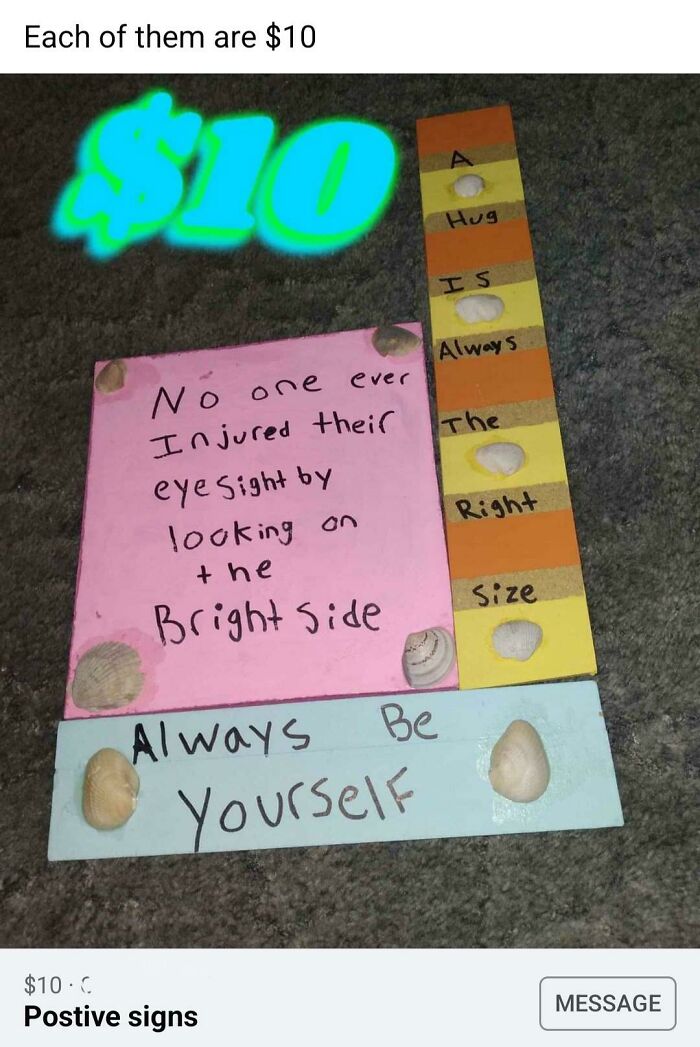 Each of them are $10
$10
A
Hug
IS
Always
The
Right
Size
No one ever
Injured their
eyesight by
looking on
the
Bright side
Always Be
Yourself
$10 ·
Postive signs
MESSAGE